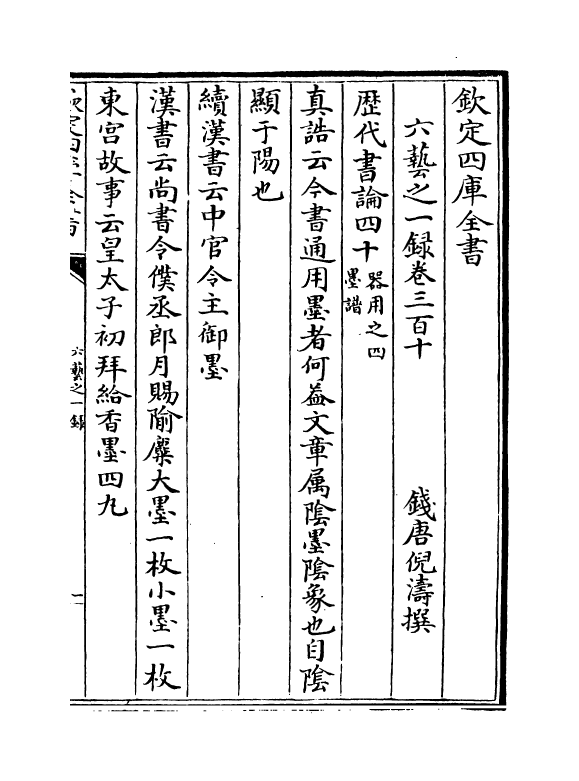 欽定四庫全書
六藝之一録卷三百十
錢唐倪濤撰
歴代書論四十
器用之四
墨譜
真誥云今書通用墨者何葢文章属陰墨陰象也自陰
顯于陽也
續漢書云中官令主御墨
漢書云尚書令僕丞郎月賜隃麋大墨一枚小墨一枚
東宫故事云皇太子初拜給香墨四九
欽定四庫全書
六藝之一録
一